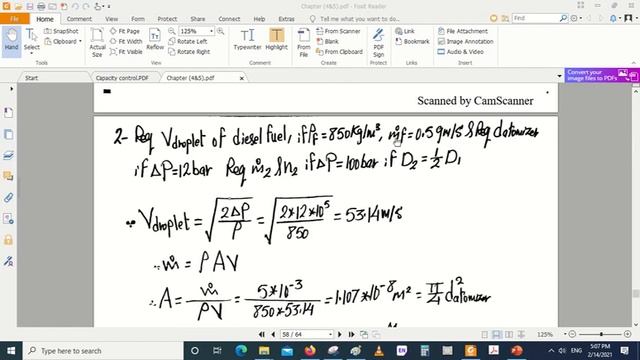 Chapter (4&5).pdf - Foxit Reader
File Home Comment View Form Protect Share Help Tell me what you want to do...
Hand Select SnapShot Clipboard Bookmark
Actual Size Fit Page Fit Width Fit Visible 125% Rotate Left Rotate Right
Typewriter Highlight
From Scanner Blank From Clipboard
PDF Sign Link Bookmark
File Attachment Image Annotation Audio & Video
Start Capacity control.PDF Chapter (4&5).pdf
Convert your image files to PDFs!
Scanned by CamScanner
2- Req Vdroplet of diesel fuel, if ρf=850kg/m³, ṁf=0.5gm/s & Req datomizer
if ΔP=12bar Req ṁ2 & n2 if ΔP=100bar if D2=1/2 D1
∵ Vdroplet = √(2ΔP/ρ) = √(2*12*10⁵/850) = 53.14m/s
∵ ṁ = ρAV
∴ A = ṁ/ρV = 5*10⁻³/850*53.14 = 1.107*10⁻⁸ m² = π/4 d²atomizer
58 / 64
125%
Type here to search
5:07 PM
2/14/2021